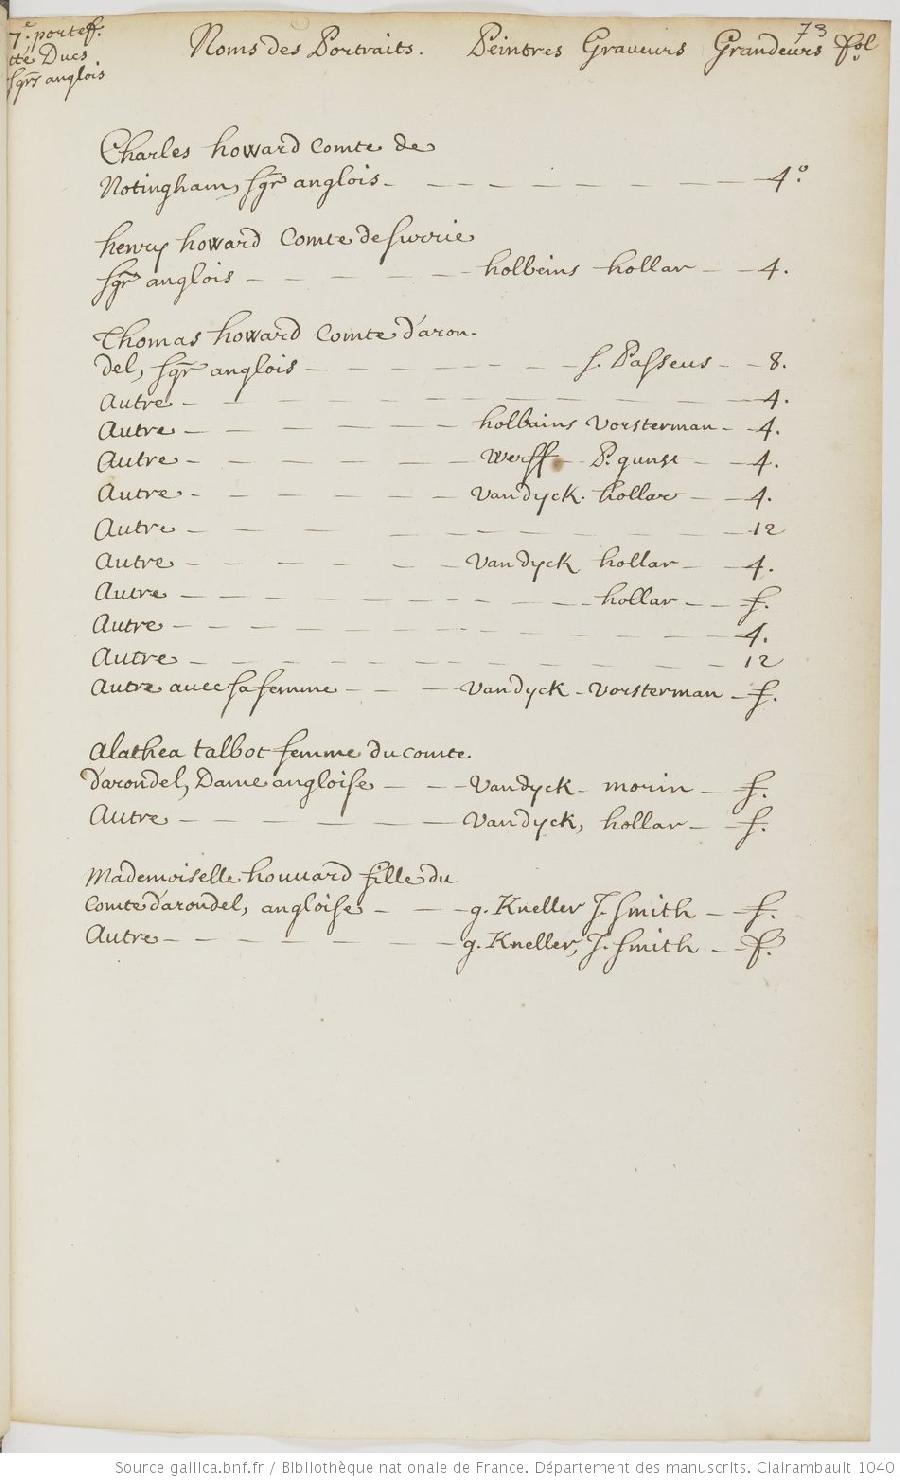 73
7.e portef.
tté Ducs
sgrs anglois
Noms des Portraits. Peintres Graveurs Grandeurs fol
Charles howard Comte de
Notingham, sgr anglois - - - - - - - - 4.o
henry howard Comte de surrie
sgr anglois - - - - - - holbeins hollar - - 4.
Thomas howard Comte d'aron-
del, sgr anglois - - - - - - - s. Passeus - - 8.
Autre - - - - - - - - - - 4.
Autre - - - - - - holbains Vorsterman - - 4.
Autre - - - - - - Werff - P. gunst - - 4.
Autre - - - - - - Vandyck. hollar - - 4.
Autre - - - - - - - - - 12
Autre - - - - - Vandyck hollar - - 4.
Autre - - - - - - - - - hollar - - f.
Autre - - - - - - - - - - 4.
Autre - - - - - - - - - - 12
Autre avec sa femme - - - Vandyck - Vorsterman - f.
Alathea talbot femme du comte.
d'arondel, Dame angloise - - - Vandyck - morin - f.
Autre - - - - - - Vandyck, hollar - - f.
Mademoiselle. houuard fille du
Comte d'arondel, angloise - - - g. Kneller J. Smith - f.
Autre - - - - - - - g. Kneller, J. Smith - - f.
Source gallica.bnf.fr / Bibliothèque nationale de France. Département des manuscrits. Clairambault 1040